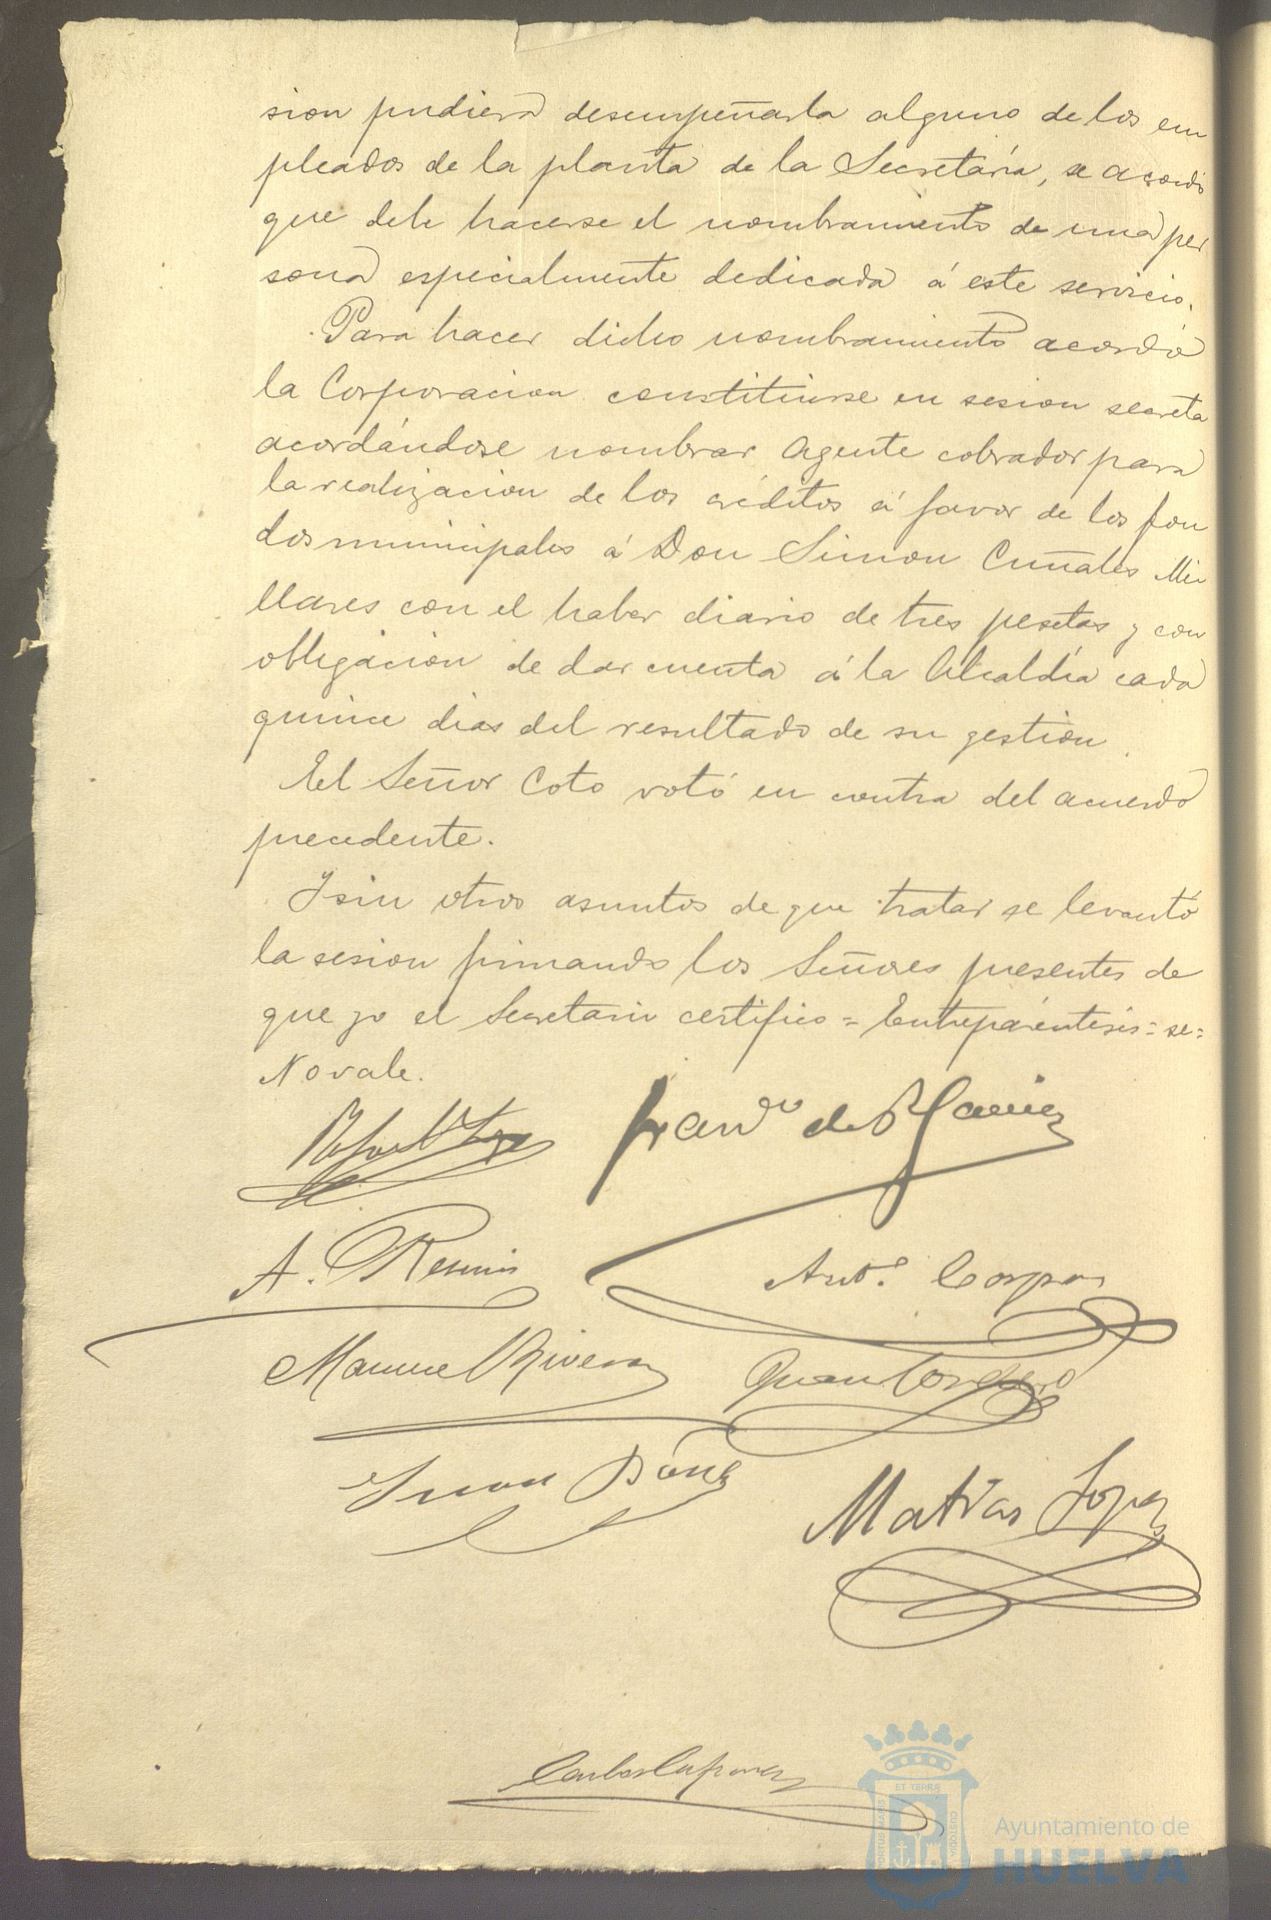 sion pudiera desempeñarla alguno de los em
pleados de la planta de la Secretaría, se acordó
que debe hacerse el nombramiento de una per
sona especialmente dedicada á este servicio.
Para hacer dicho nombramiento acordó
la Corporacion constituirse en sesion secreta
acordándose nombrar Agente cobrador para
la realizacion de los créditos á favor de los fon
dos municipales á Don Simon Cuñales Mi
llares con el haber diario de tres pesetas y con
obligacion de dar cuenta á la Alcaldía cada
quince dias del resultado de su gestion.
El Señor Coto votó en contra del acuerdo
precedente.
Y sin otros asuntos de que tratar se levantó
la sesion firmando los Señores presentes de
que yo el Secretario certifico = Entreparéntesis = se =
No vale.
Franco de P.
A.
Anto.
Manuel Rivera
Juan Cordero
Juan
Matías Lopez
Carlos
ET TERRÆ
PORTUS MARIS
CUSTODIA
Ayuntamiento de
HUELVA